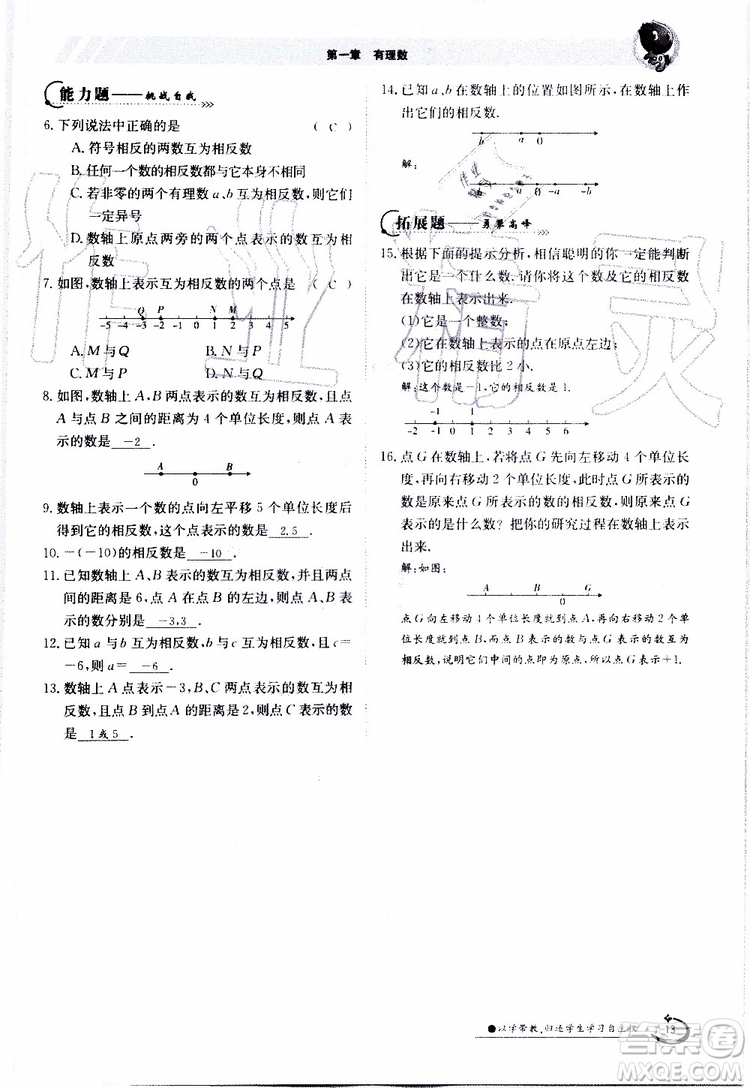 第一章　有理数
能力题——挑战自我
6. 下列说法中正确的是 ( C )
A. 符号相反的两数互为相反数
B. 任何一个数的相反数都与它本身不同
C. 若非零的两个有理数 a、b 互为相反数，则它们
一定异号
D. 数轴上原点两旁的两个点表示的数互为相
反数
7. 如图，数轴上表示互为相反数的两个点是 ( C )
Q P N M
-5 -4 -3 -2 -1 0 1 2 3 4 5
A. M 与 Q B. N 与 P
C. M 与 P D. N 与 Q
8. 如图，数轴上点 A、B 两点表示的数互为相反数，
且点 A 与点 B 的距离为 4 个单位长度，则点 A 表
示的数是 -2 .
A 0 B
9. 数轴上表示一个数的点向左平移 5 个单位长度后
得到它的相反数，这个点表示的数是 2.5 .
10. -(-10)的相反数是 -10 .
11. 已知数轴上 A、B 表示的数互为相反数，并且两点
间的距离是 6，点 A 在点 B 的左边，则点 A、B 表
示的数分别是 -3,3 .
12. 已知 a 与 b 互为相反数，b 与 c 互为相反数，且 c=
-6，则 a= -6 .
13. 数轴上 A 点表示-3，B、C 两点表示的数互为相
反数，且点 B 到点 A 的距离是 2，则点 C 表示的数
是 1或5 .
14. 已知 a、b 在数轴上的位置如图所示，在数轴上作
出它们的相反数.
b a 0
解：
b a 0 -a -b
拓展题——勇攀高峰
15. 根据下面的提示分析，相信聪明的你一定能判断
出它是一个什么数. 请你将这个数及它的相反数
在数轴上表示出来.
(1)它是一个整数；
(2)它在数轴上表示的点在原点左边；
(3)它的相反数比 2 小.
解：这个数是-1，它的相反数是 1.
-1 1
-2 -1 0 1 2 3 4 5
16. 点 G 在数轴上，若将点 G 先向左移动 4 个单位长
度，再向右移动 2 个单位长度，此时点 G 所表示的
数是原来点 G 所表示的数的相反数，则原来点 G
表示的是什么数？把你的研究过程在数轴上表示
出来.
解：如图：
A B G
0
点 G 向左移动 4 个单位长度就到点 A，再向右移动 2 个单
位长度就到点 B，而点 B 表示的数与点 G 表示的数互为
相反数，说明它们中间的点即为原点，所以点 G 表示 1.
●以学带教，归还学生学习自主权
13
作业精灵
答案圈
MXQE.COM